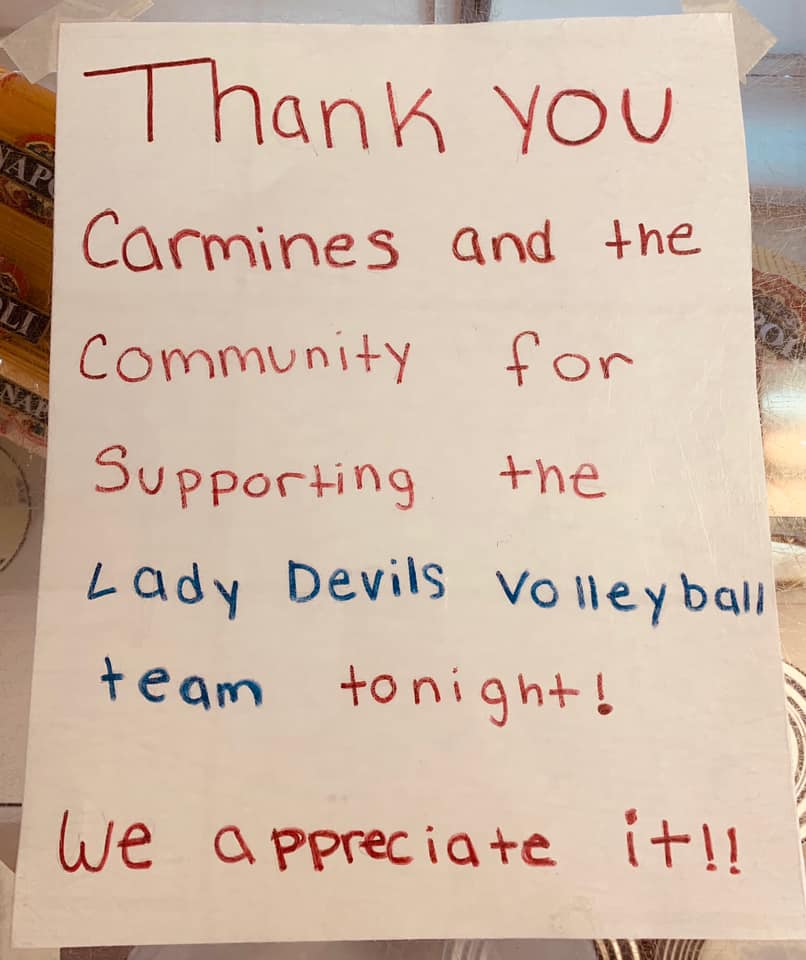 Thank you
Carmines and the
Community for
Supporting the
Lady Devils Volleyball
team tonight!
We appreciate it!!
NAPO
OLI
NAP
NAPOL